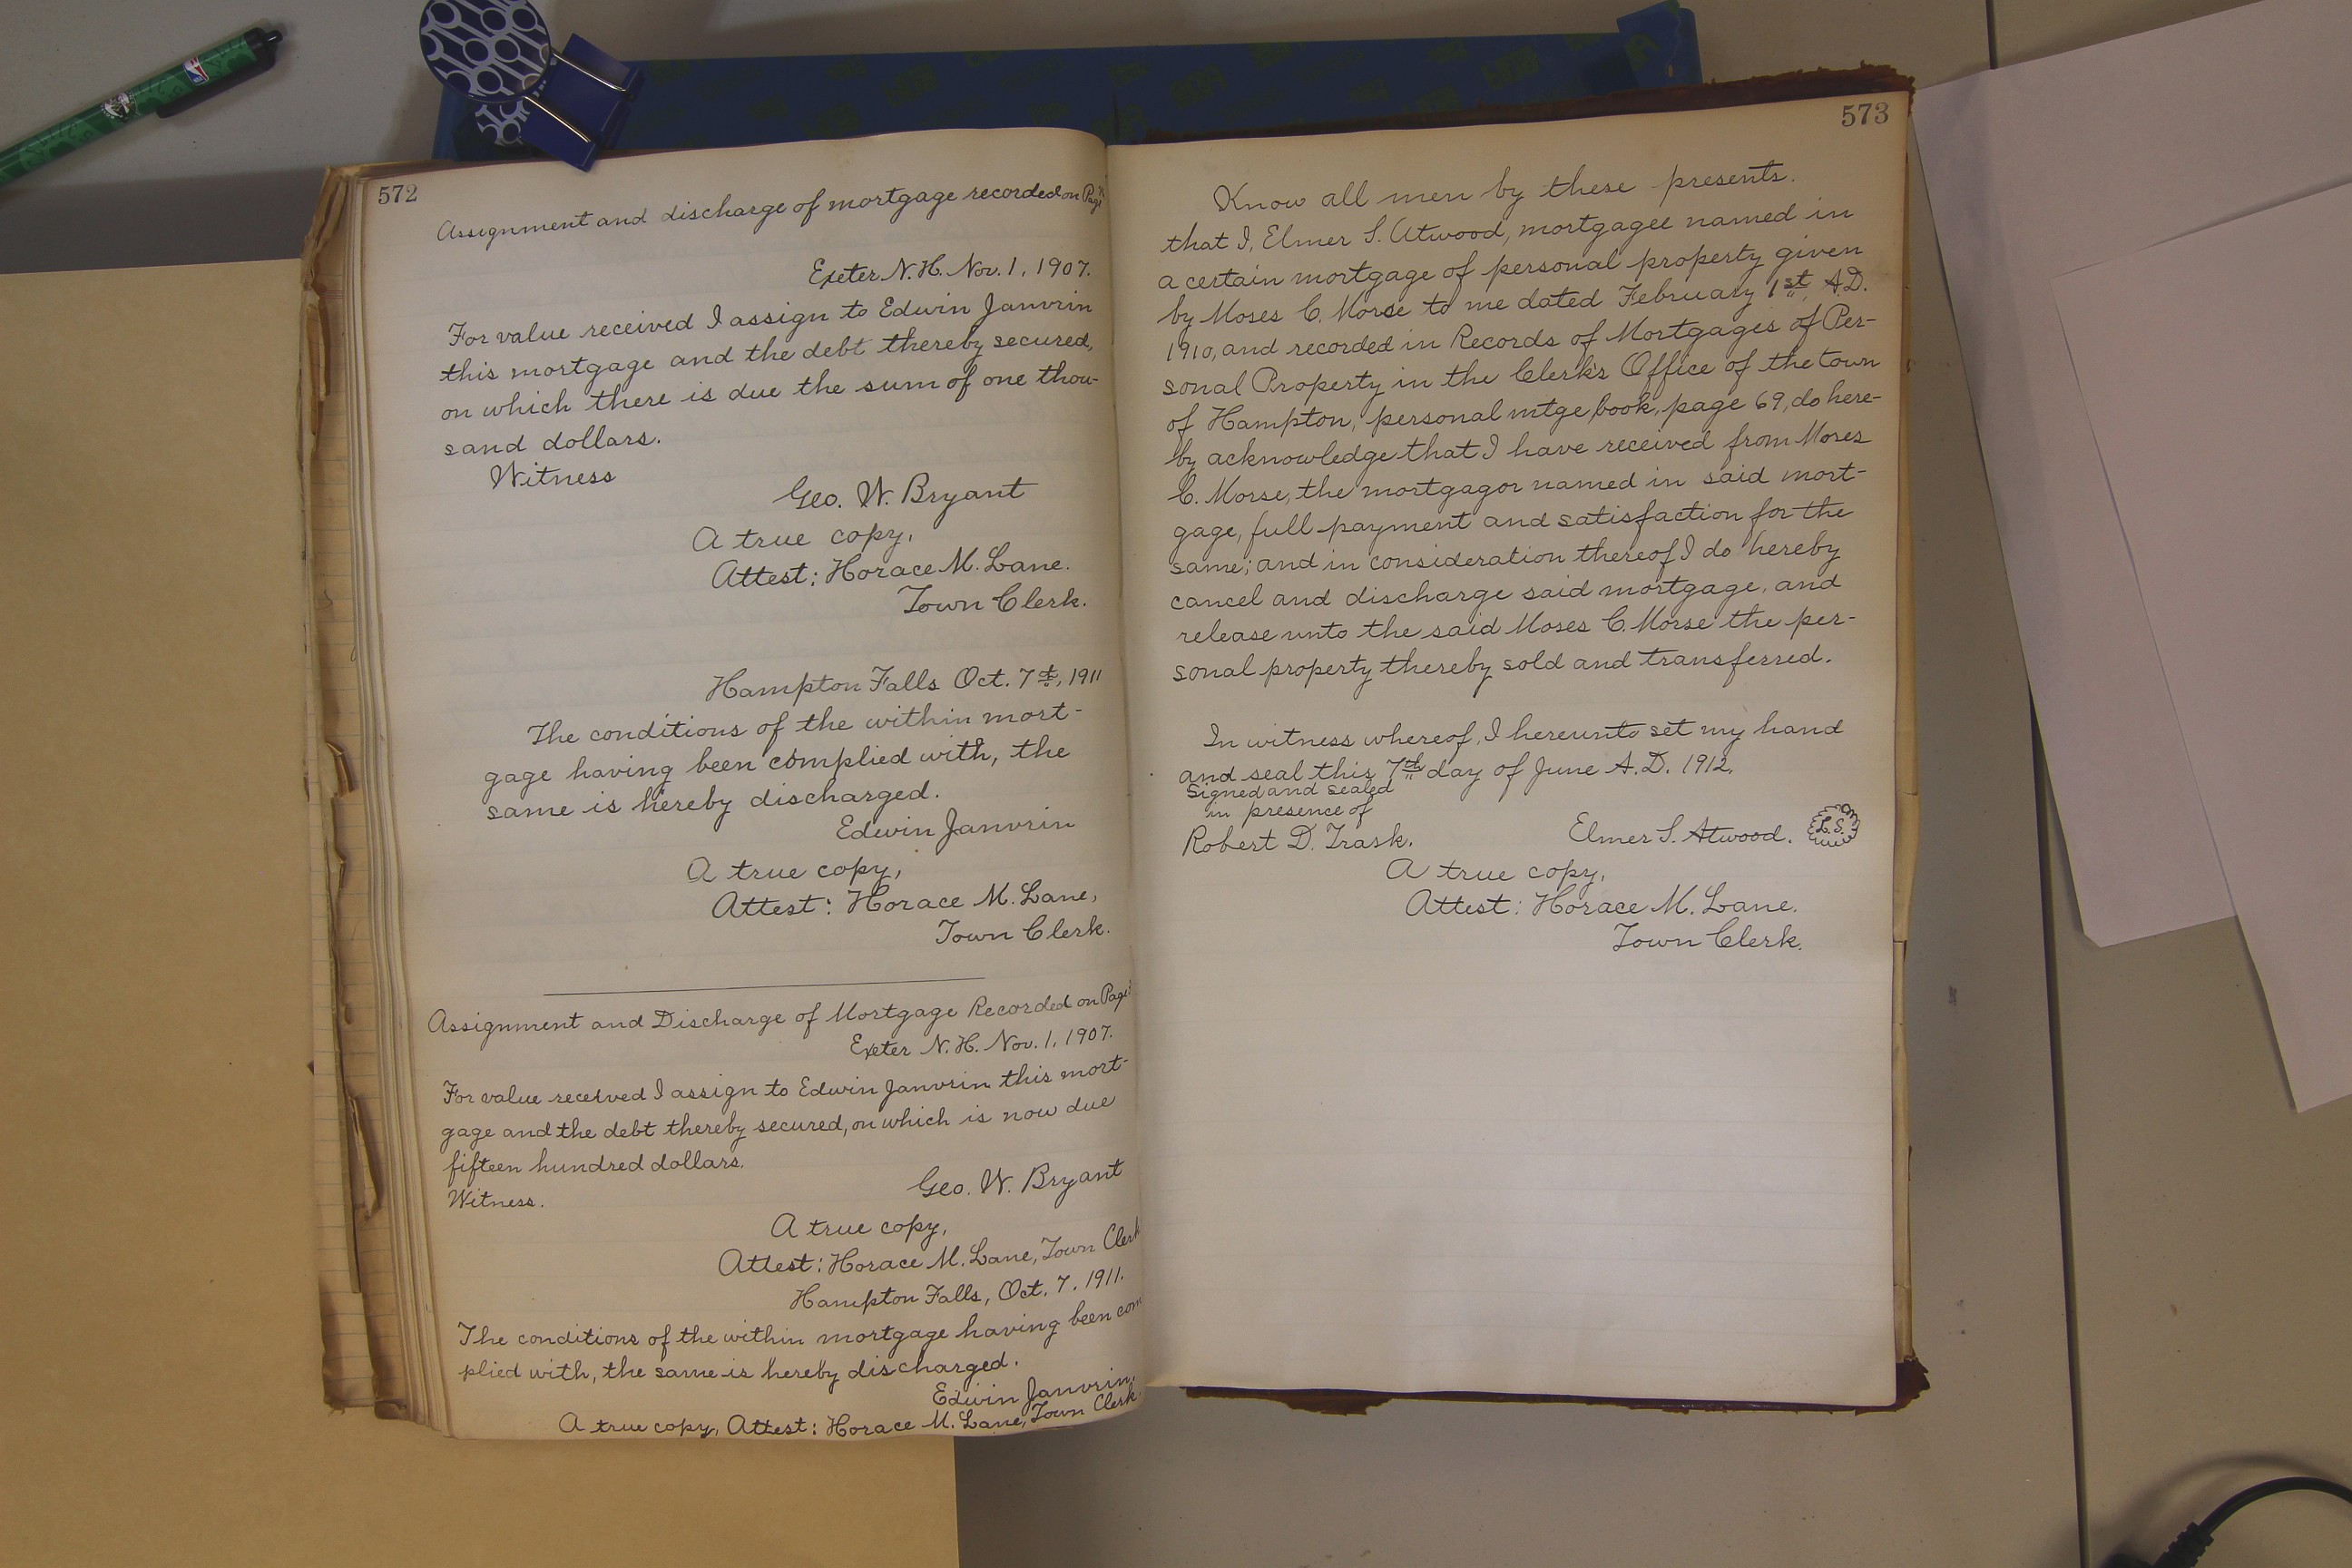 572
Assignment and discharge of mortgage recorded on Page
Exeter N.H. Nov. 1, 1907.
For value received I assign to Edwin Janvrin
this mortgage and the debt thereby secured,
on which there is due the sum of one thou-
sand dollars.
Witness
Geo. W. Bryant
A true copy,
Attest: Horace M. Lane.
Town Clerk.
Hampton Falls Oct. 7th, 1911
The conditions of the within mort-
gage having been complied with, the
same is hereby discharged.
Edwin Janvrin
A true copy,
Attest: Horace M. Lane,
Town Clerk.
Assignment and Discharge of Mortgage Recorded on Page
Exeter N.H. Nov. 1, 1907.
For value received I assign to Edwin Janvrin this mort-
gage and the debt thereby secured, on which is now due
fifteen hundred dollars.
Geo. W. Bryant
Witness.
A true copy,
Attest: Horace M. Lane, Town Clerk
Hampton Falls, Oct. 7, 1911.
The conditions of the within mortgage having been com
plied with, the same is hereby discharged.
Edwin Janvrin.
A true copy, Attest: Horace M. Lane, Town Clerk
573
Know all men by these presents.
that I, Elmer S. Atwood, mortgagee named in
a certain mortgage of personal property given
by Moses C. Morse to me dated February 1st, A.D.
1910, and recorded in Records of Mortgages of Per-
sonal Property in the Clerk's Office of the town
of Hampton, personal mtge book, page 69, do here-
by acknowledge that I have received from Moses
C. Morse, the mortgagor named in said mort-
gage, full payment and satisfaction for the
same; and in consideration thereof I do hereby
cancel and discharge said mortgage, and
release unto the said Moses C. Morse the per-
sonal property thereby sold and transferred.
In witness whereof, I hereunto set my hand
and seal this 7th day of June A.D. 1912.
Signed and sealed
in presence of
Robert D. Trask. Elmer S. Atwood. L.S.
A true copy,
Attest: Horace M. Lane.
Town Clerk.